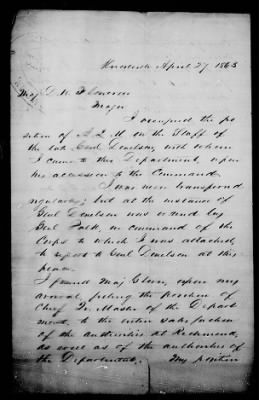 Knoxville April 27 1863
Maj D. W. Flowerree
Major
I occupied the po
sition of A.Q.M. on the Staff of
the late Genl Donelson, with whom
I came to this Department, upon
his accession to the Command.
I was never transferred
regularly; but at the instance of
Genl Donelson was ordered by
Genl Polk, in command of the
Corps to which I was attached,
to report to Genl Donelson at this
place.
I found Maj Glover, upon my
arrival, filling the position of
Chief Qr Master of the Depart
ment to the entire satisfaction
of the authorities at Richmond,
as well as of the authorities of
the Department. My position